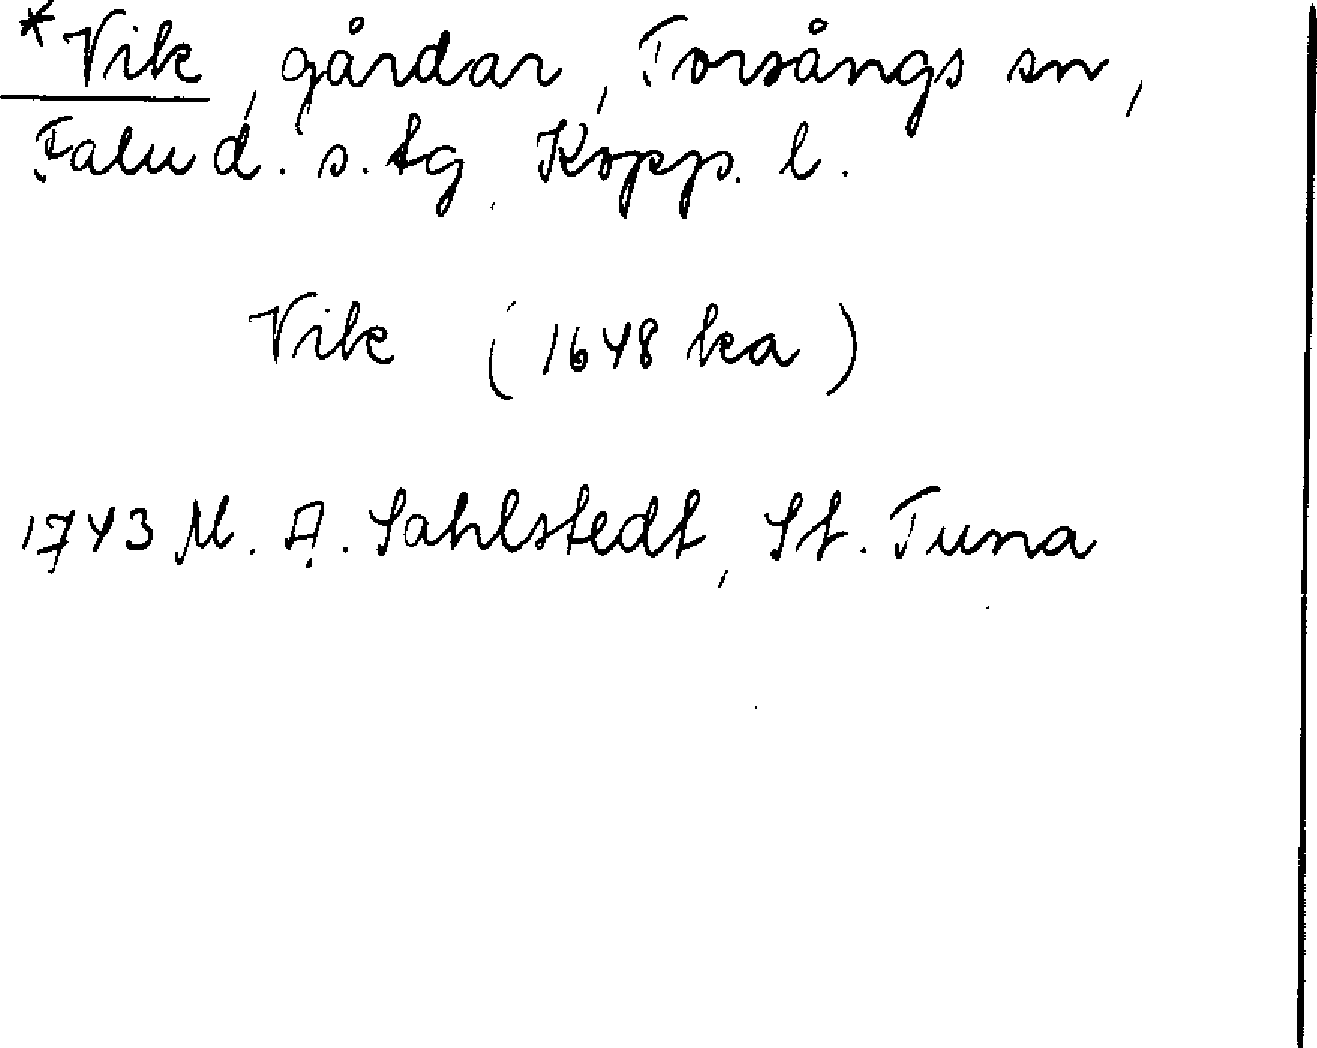 *Vik, gårdar, Torsångs sn,
Falu d. s. tg, Kopp. l.
Vik (1648 ka)
1743 M. A. Sahlstedt, St. Tuna